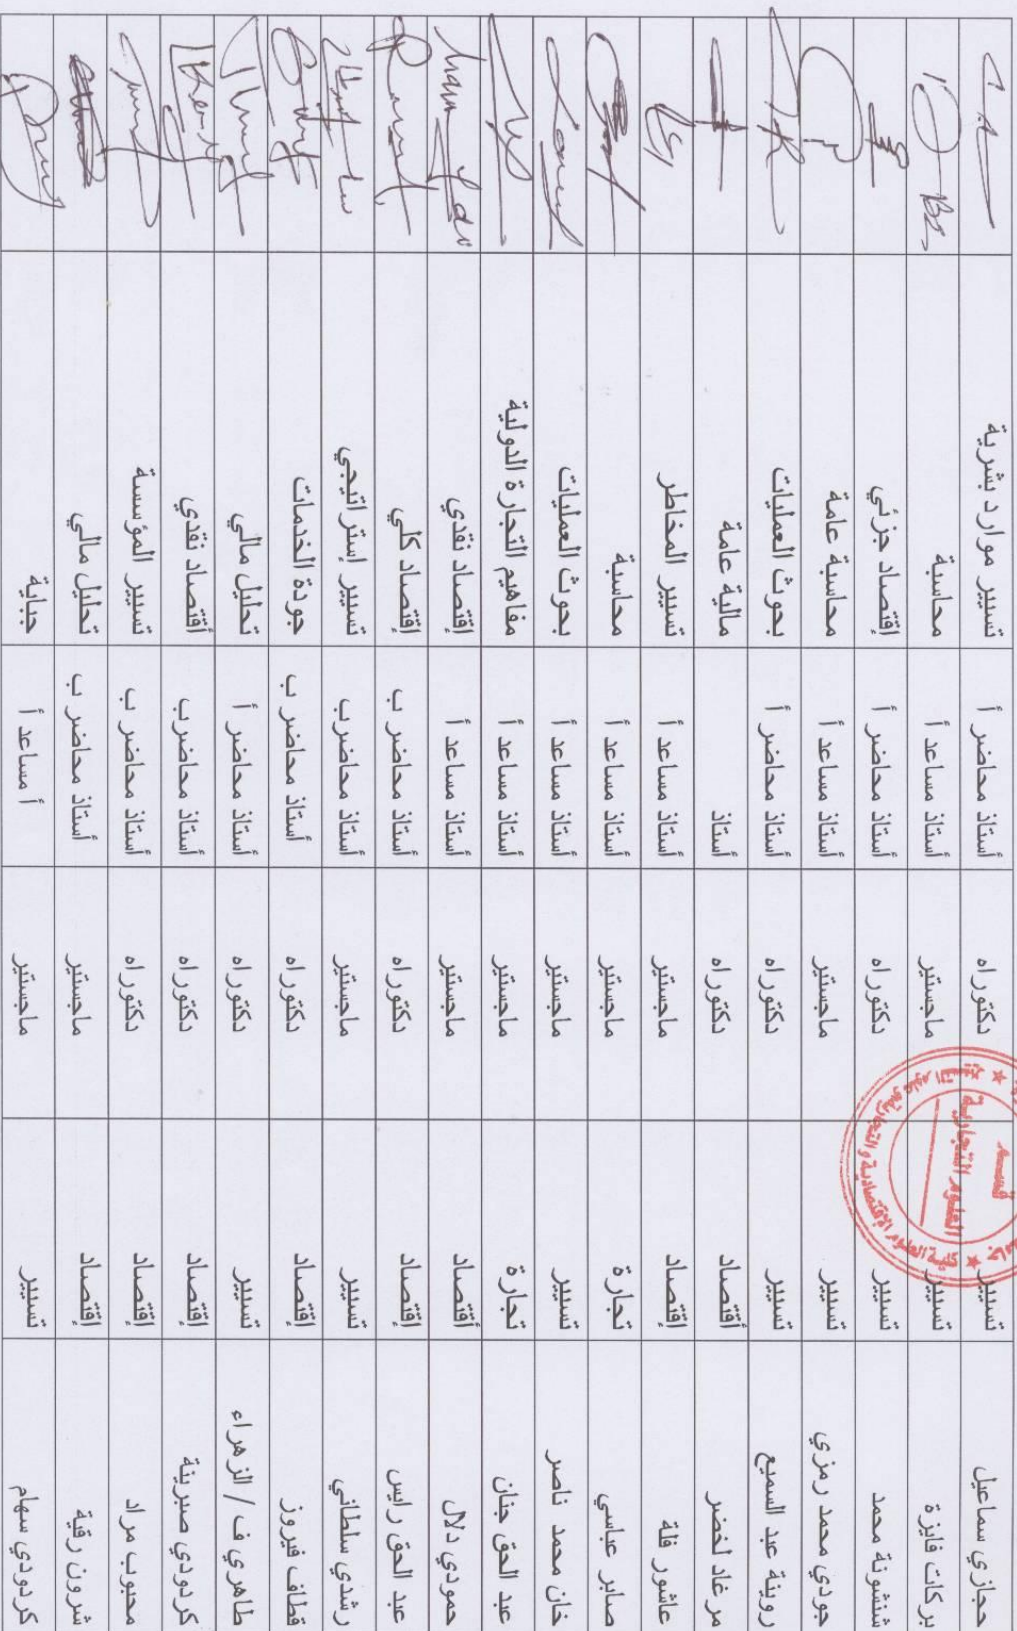 حجازي سماعيل تسيير دكتوراه أستاذ محاضر أ تسيير موارد بشرية
بركات فايزة تسيير ماجستير أستاذ مساعد أ محاسبة
شنشونة محمد تسيير دكتوراه أستاذ محاضر أ إقتصاد جزئي
جودي محمد رمزي تسيير ماجستير أستاذ مساعد أ محاسبة عامة
روينة عبد السميع تسيير دكتوراه أستاذ محاضر أ بحوث العمليات
مرغاد لخضر أقتصاد دكتوراه أستاذ مالية عامة
عاشور فلة إقتصاد ماجستير أستاذ مساعد أ تسيير المخاطر
صابر عباسي تجارة ماجستير أستاذ مساعد أ محاسبة
خان محمد ناصر تسيير ماجستير أستاذ مساعد أ بحوث العمليات
عبد الحق جنان تجارة ماجستير أستاذ مساعد أ مفاهيم التجارة الدولية
حمودي دلال أقتصاد ماجستير أستاذ مساعد أ إقتصاد نقدي
عبد الحق رايس إقتصاد دكتوراه أستاذ محاضر ب إقتصاد كلي
رشدي سلطاني تسيير ماجستير أستاذ محاضرب تسيير إستراتيجي
قطاف فيروز إقتصاد دكتوراه أستاذ محاضر ب جودة الخدمات
طاهري ف / الزهراء تسيير دكتوراه أستاذ محاضر أ تحليل مالي
كردودي صبرينة إقتصاد دكتوراه أستاذ محاضرب أقتصاد نقدي
محبوب مراد إقتصاد دكتوراه أستاذ محاضر ب تسيير المؤسسة
شرون رقية إقتصاد ماجستير أستاذ محاضر ب تحليل مالي
كردودي سهام تسيير ماجستير أ مساعد أ جباية
قسم
العلوم التجارية
كلية العلوم الإقتصادية والتجارية وعلوم التسيير